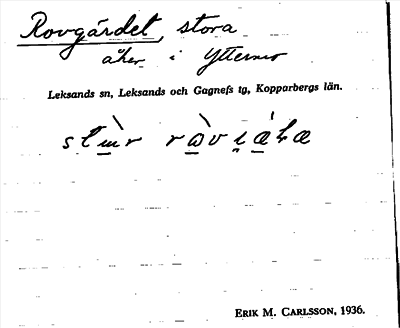 Rovgärdet, stora
åker i Yttermo
Leksands sn, Leksands och Gagnefs tg, Kopparbergs län.
ERIK M. CARLSSON, 1936.